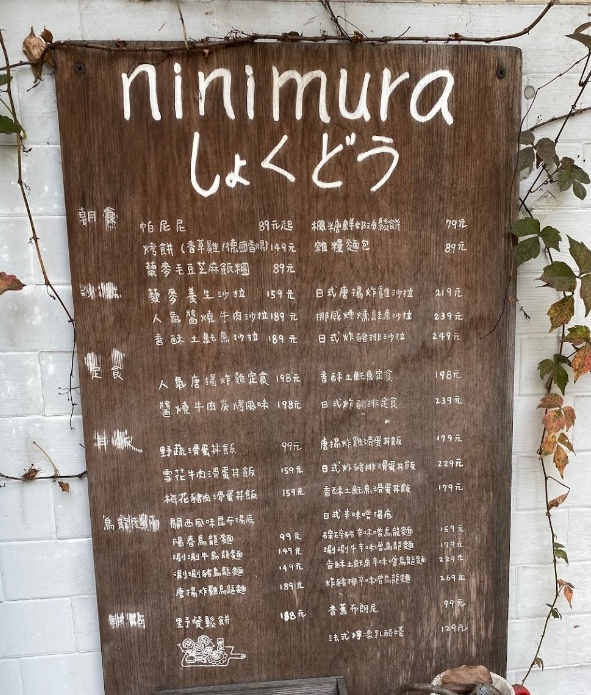 ninimura
しょくどう
朝食
帕尼尼 89元起 楓糖鮮奶油鬆餅 79元
烤餅(香草雞/德國香腸) 149元 雜糧麵包 89元
藜麥毛豆芝麻飯糰 89元
沙拉
藜麥養生沙拉 159元 日式唐揚炸雞沙拉 219元
人氣醬燒牛肉沙拉 189元 挪威煙燻鮭魚沙拉 239元
香酥土魠魚沙拉 189元 日式炸豬排沙拉 249元
定食
人氣唐揚炸雞定食 198元 香酥土魠魚定食 198元
醬燒牛肉炭烤風味 198元 日式炸豬排定食 239元
丼飯
野蔬滑蛋丼飯 99元 唐揚炸雞滑蛋丼飯 179元
雪花牛肉滑蛋丼飯 159元 日式炸豬排滑蛋丼飯 229元
梅花豬肉滑蛋丼飯 159元 香酥土魠魚滑蛋丼飯 179元
烏龍麵
關西風味昆布湯底 日式辛味噌湯底
陽春烏龍麵 99元 辛味噌烏龍麵 159元
涮涮牛烏龍麵 149元 涮涮牛辛味噌烏龍麵 179元
涮涮豬烏龍麵 149元 香酥土魠魚辛味噌烏龍麵 229元
唐揚炸雞烏龍麵 189元 炸豬排辛味噌烏龍麵 269元
野餐鬆餅 188元 香蕉布朗尼 99元
法式檸檬乳酪塔 129元